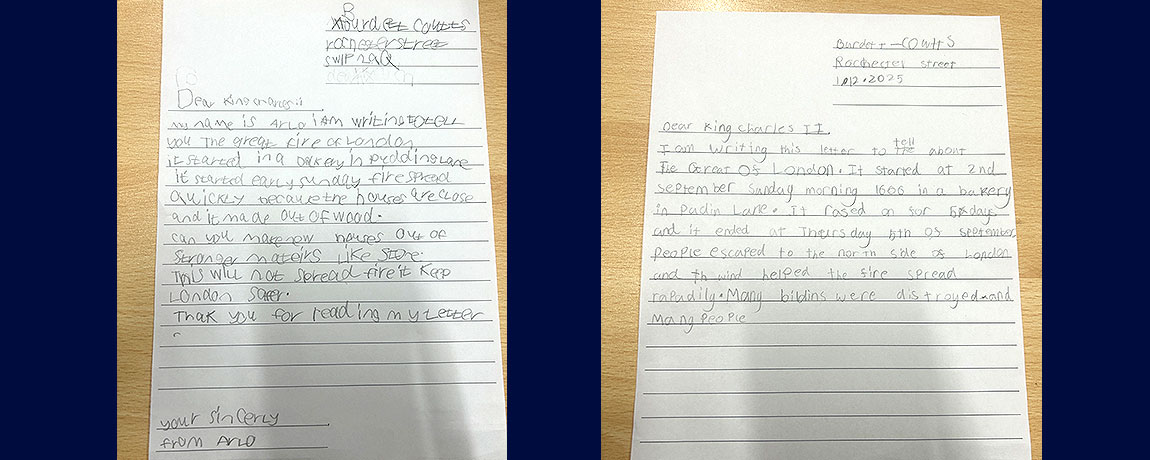 B
Burdett Coutts
rochester street
SW1P 2QQ
Dear King charles ii
my name is Arlo i AM writing to tell
you The great fire of London
it started in a bakery in pudding lane
it started early sunday fire spread
Quickly because the houses are close
and it made out of wood.
can you make now houses out of
stronger mateirs like stone.
This will not spread fire it keep
London safer.
Thak you for reading my letter
.
your sincerly
from Arlo
Burdett-Coutts
Rochester street
1.12.2025
Dear King Charles II,
I am writing this letter to tell about
The Goreat Of London. It started at 2nd
september Sunday morning 1666 in a bakery
in Pudin Lane. It rased on for 5 days
and it ended at Thursday 5th Of september
People escaped to the north side of London
and th wind helped the fire spread
rapadily. Many bildins were distroyed and
Many People